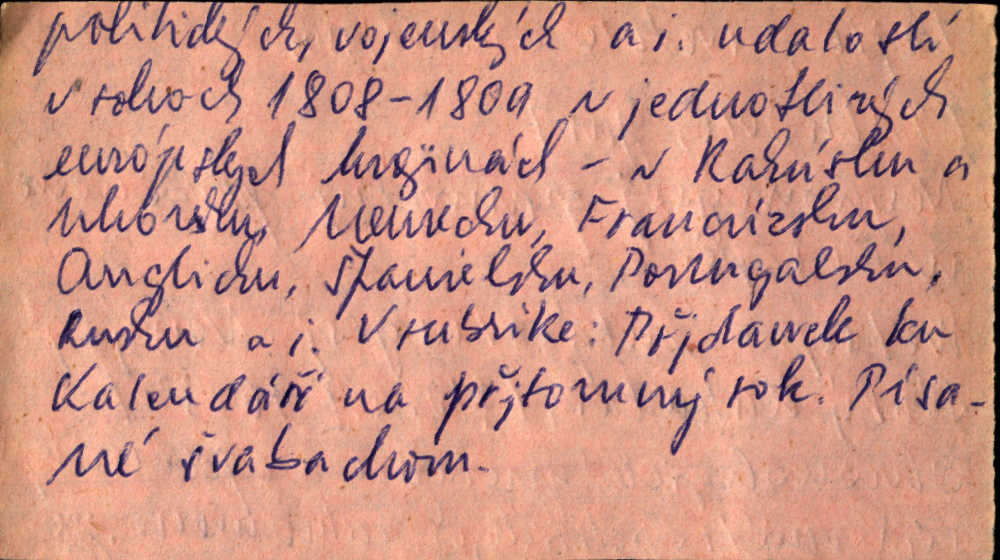 politických, vojenských a i. udalostí
v rokoch 1808-1809 v jednotlivých
európskych krajinách - v Rakúsku a
Uhorsku, Nemecku, Francúzsku,
Anglicku, Španielsku, Portugalsku,
Rusku a i. V rubrike: Přjdawek ku
Kalendáři na přjtomný rok. Písa-
né švabachom.